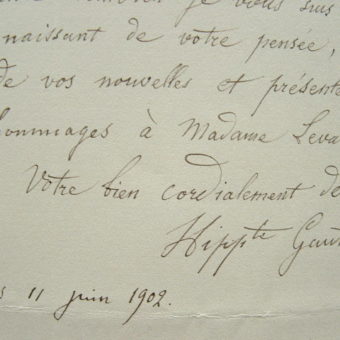 je vous suis
naissant de votre pensée,
de vos nouvelles et présente
hommages à Madame Leva
Votre bien cordialement dé
Hippte Gau
s 11 juin 1902.